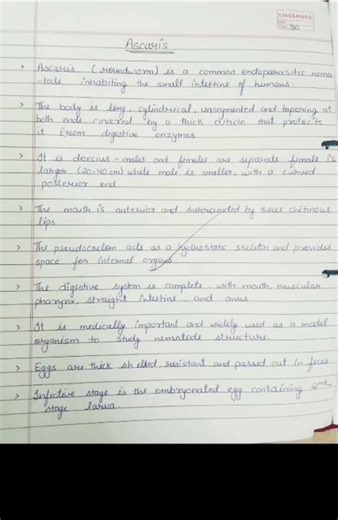 classmate
Ascaris
> Ascaris (roundworm) is a common endoparasitic nema
-tode inhabiting the small intestine of humans
> The body is long, cylindrical, unsegmented and tapering at
both ends covered by a thick cuticle that protects
it from digestive enzymes
> It is doecius - males and females are separate female is
larger (20-40cm) while male is smaller, with a curved
posterior end
> The mouth is anterior and surrounded by three chitinous
lips
> The pseudocoelom acts as a hydrostatic skeleton and provides
space for internal organs
> The digestive system is complete, with mouth, muscular
pharynx, straight intestine, and anus
> It is medically important and widely used as a model
organism to study nematode structure.
> Eggs are thick shelled, resistant and passed out in feces
> Infective stage is the embryonated egg containing 2nd
stage larva.